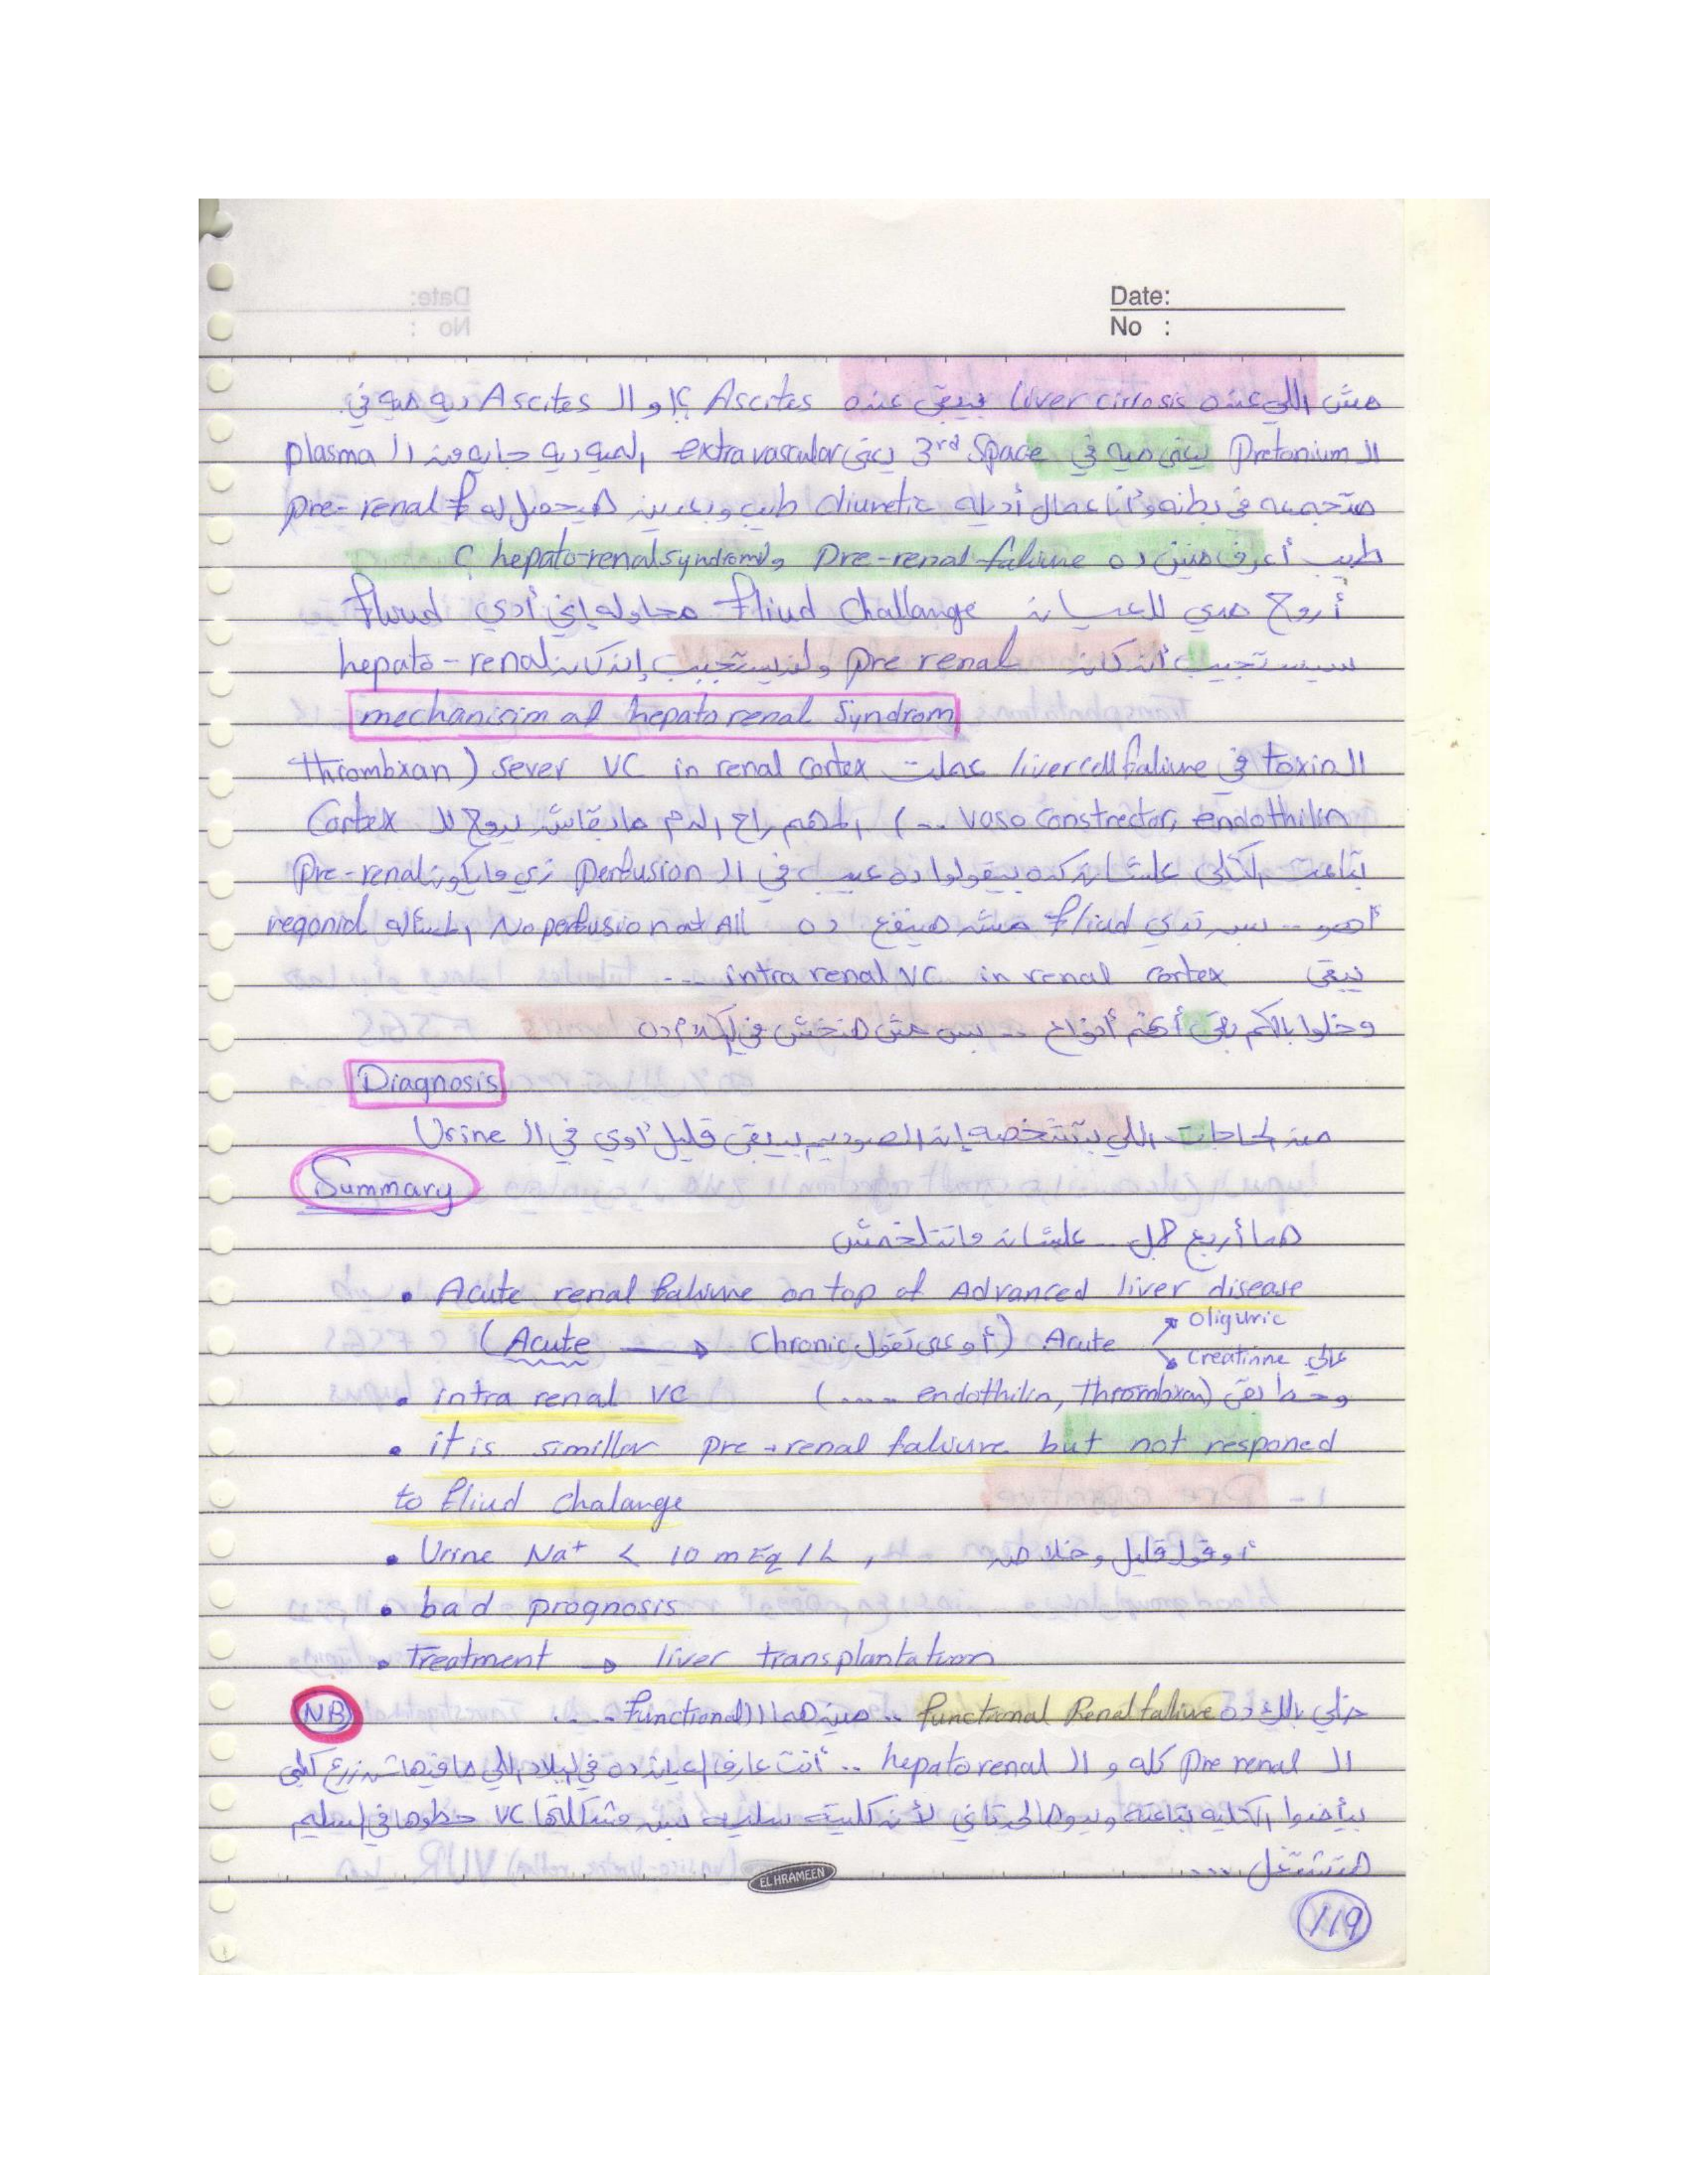 Date:
No :
مش اللي عنده liver cirrosis يبقى عنده Ascites ؟! و ال Ascites ديه ميه في
ال Pretonium يبقى ميه في 3rd Space يعني extravascular الميه ديه جايه من ال plasma
متجمعه في بطنه وأنا عمال أديله diuretic طيب وبعدين هيحصل له pre-renal f
طيب أعرف منين ده Pre-renal faliure و hepato-renal syndrom ؟
أروح مدي للعيان fliud challange محاوله إني أدي fluud
سيستجيب أن كان pre renal ولن يستجيب إن كان hepato-renal
mechanisim of hepato renal Syndrom
ال toxin في liver cell faliure عملت sever VC in renal cortex ( thrombxan
vaso constrector, endothilin ...) المهم راح الدم مابقاش يروح لل Cortex
بتاعت الكلى علشان كده بيقولوا ده عيب في ال perfusion زي مايكون pre-renal
أهو .. بس تدي fliud مش هينفع ده No perfusion at All المسأله regonid
تبقى intra renal VC in renal cortex ...
وخلوا بالكم بقى أهم أنواع .. بس مش هنخش في الكلام ده
Diagnosis
من الحاجات اللي بتشخصه إن الصوديوم بيبقى قليل أوي في ال Urine
Summary
هما أربع جمل .. علشان ماتتلخمش
• Acute renal faliure on top of Advanced liver disease
(Acute → Chronic أوعى تقول) Acute Oliguric
Creatinne عالي
• intra renal VC (.... endothilin, thrombxan) وحط بقى
• it is simillar pre-renal faliure but not responed
to fliud chalange
• Urine Na+ < 10 mEq/L , أو قول قليل وخلاص
• bad prognosis
• treatment → liver transplantation
NB خلي بالك ده functional Renal faliure .. مين هما ال functional ....
ال pre renal كله و ال hepato renal .. أنت عارف العيان ده في البلاد اللي مافيهاش زرع كلى
بيأخدوا الكليه بتاعته ويدوها لحد تاني لأن كليته سليمه بس مشكلتها VC حطوها في سليم
هتشتغل ....
EL HRAMEEN
119